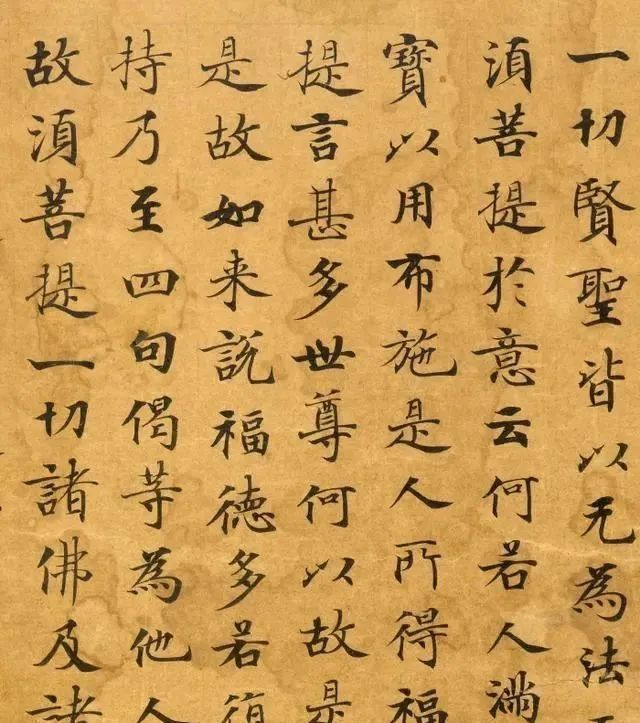 一切賢聖皆以无為法
湏菩提於意云何若人滿
寶以用布施是人所得福
提言甚多世尊何以故是
是故如来說福德多若復
持乃至四句偈等為他人
故湏菩提一切諸佛及諸